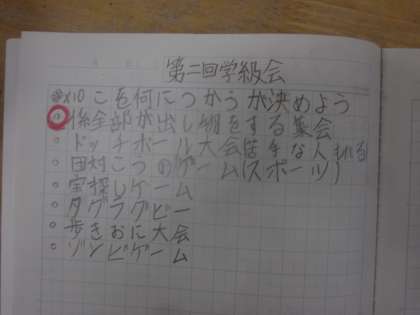 第二回学級会
※×10こを何につかうか決めよう
係全部が出し物をする集会
ドッチボール大会苦手な人も
田対こつのゲーム(スポーツ)
宝探しゲーム
タグラグビー
歩きおに大会
ゾンビゲーム